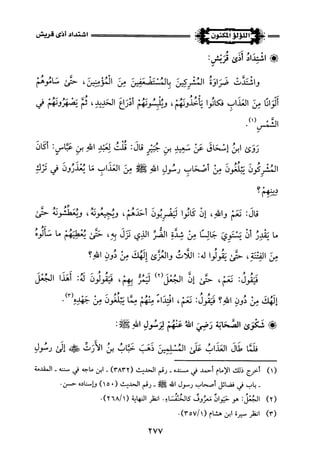 اللؤلؤ المكنون
اشتداد أذى قريش
❁ اشْتِدَادُ أَذَى قُرَيْشٍ:
واشْتَدَّتْ ضَرَاوَةُ المُشْرِكِينَ بِالمُسْتَضْعَفِينَ مِنَ المُؤْمِنِينَ، حتَّى سَامُوهُمْ
أَلْوَانًا مِنَ العَذَابِ فكانُوا يَأْخُذُونَهُمْ، ويُلْبِسُونَهُمْ أَدْرَاعَ الحَدِيدِ، ثُمَّ يَصْهَرُونَهُمْ في
الشَّمْسِ(١).
رَوَى ابنُ إِسْحَاقَ عَنْ سَعِيدِ بنِ جُبَيْرٍ قالَ: قُلْتُ لِعَبْدِ اللهِ بنِ عَبَّاسٍ: أكَانَ
المُشْرِكُونَ يَبْلُغُونَ مِنْ أَصْحَابِ رسُولِ اللهِ ﷺ مِنَ العَذَابِ مَا يُعْذَرُونَ في تَرْكِ
دِينِهِمْ؟
قالَ: نَعَمْ واللهِ، إنْ كَانُوا لَيَضْرِبُونَ أحَدَهُمْ، ويُجِيعُونَهُ، ويُعَطِّشُونَهُ حتَّى
ما يَقْدِرُ أنْ يَسْتَوِيَ جَالِسًا مِنْ شِدَّةِ الضُّرِّ الذِي نَزَلَ بِهِ، حتَّى يُعْطِيَهُمْ ما سَأَلُوهُ
مِنَ الفِتْنَةِ، حتَّى يَقُولُوا له: اللَّاتُ والعُزَّى إِلَهُكَ مِنْ دُونِ اللهِ؟
فَيَقُولُ: نَعَمْ، حتَّى إنَّ الجُعَلَ(٢) لَيَمُرُّ بِهِمْ، فَيَقُولُونَ لَهُ: أَهَذَا الجُعَلُ
إِلَهُكَ مِنْ دُونِ اللهِ؟ فَيَقُولُ: نَعَمْ، افْتِدَاءً مِنْهُمْ مِمَّا يَبْلُغُونَ مِنْ جَهْدِهِ(٣).
❁ شَكْوَى الصَّحَابَةِ رَضِيَ اللهُ عَنْهُمْ لِرَسُولِ اللهِ ﷺ:
فلَمَّا طَالَ العَذَابُ عَلَى المُسْلِمِينَ ذَهَبَ خَبَّابُ بنُ الأَرَتِّ ﷺ إلَى رسُولِ
(١) أخرج ذلك الإمام أحمد في مسنده - رقم الحديث (٣٨٣٢) - ابن ماجه في سننه - المقدمة
- باب في فضائل أصحاب رسول الله ﷺ - رقم الحديث (١٥٠) وإسناده حسن.
(٢) الجُعَلُ: هو حَيوانٌ مَعرُوفٌ كالخُنْفُسَاءِ. انظر النهاية (٢٦٨/١).
(٣) انظر سيرة ابن هشام (٣٥٧/١)
٢٧٧